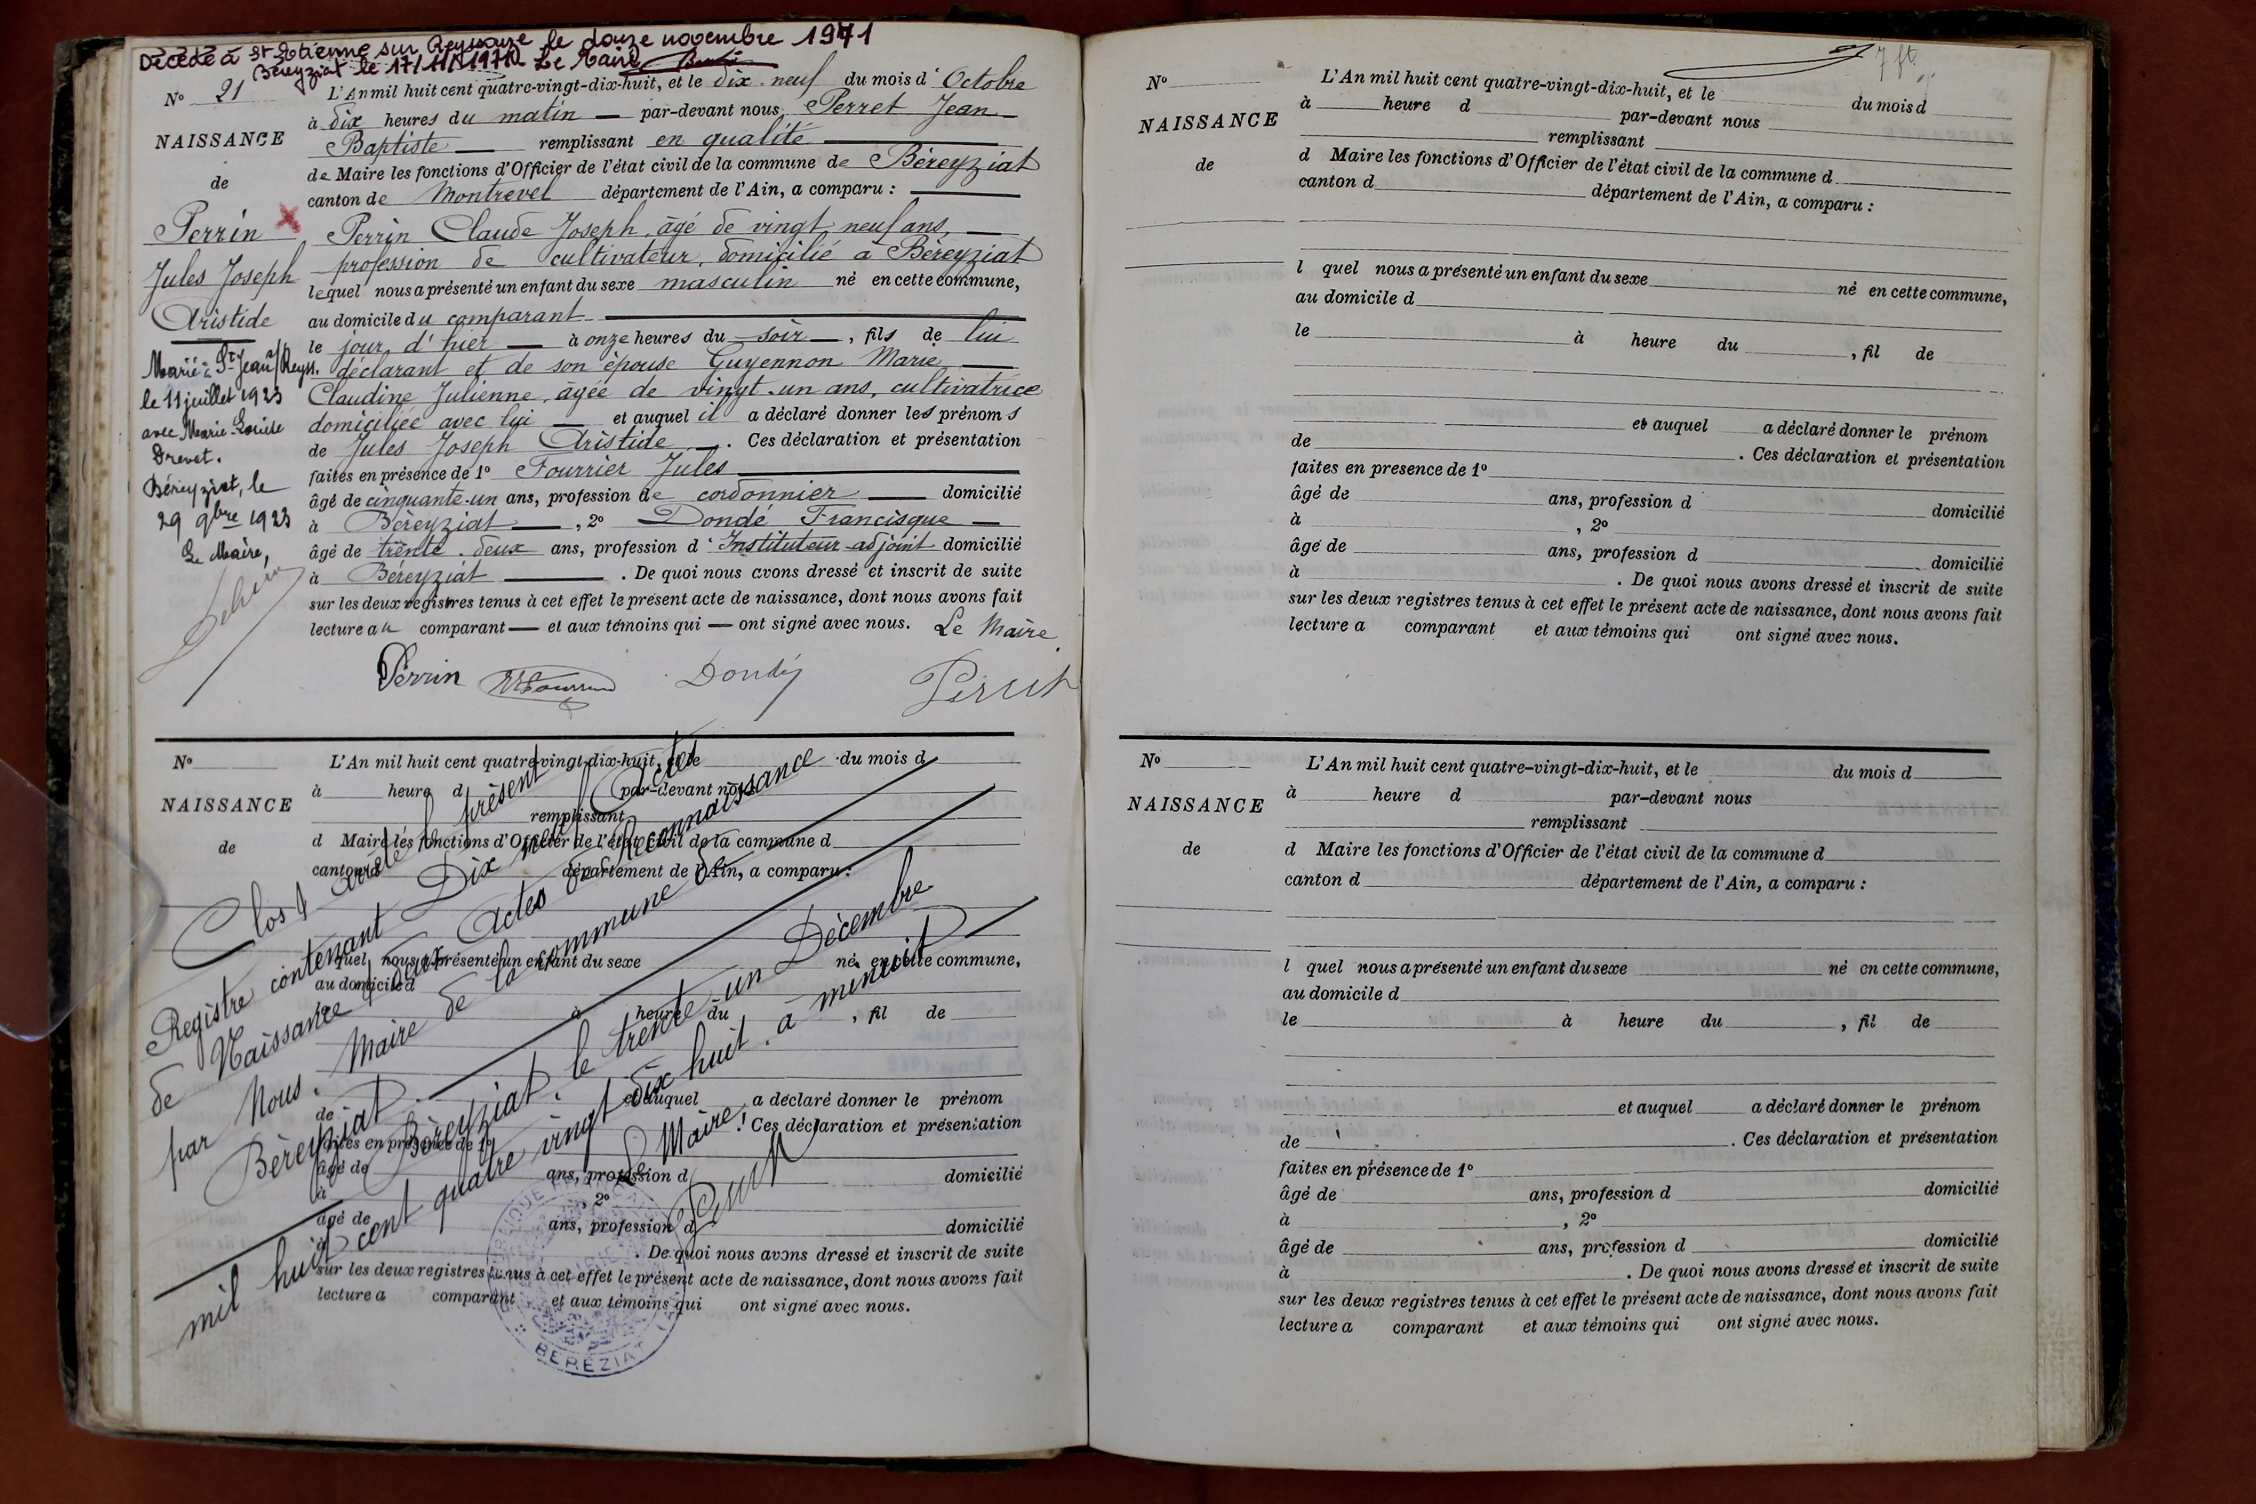 Décédé à St Etienne sur Reyssouze le douze novembre 1971
Béreyziat le 17/11/1971 Le Maire
No 21
NAISSANCE
de
Perrin
Jules Joseph
Aristide
Marié à St Jean s/ Reyss.
le 11 juillet 1923
avec Marie
Drevet.
Béreyziat, le
29 9bre 1923
Le Maire,
L'An mil huit cent quatre-vingt-dix-huit, et le dix-neuf du mois d'Octobre
à dix heures du matin — par-devant nous Perret Jean —
Baptiste — remplissant en qualité —
de Maire les fonctions d'Officier de l'état civil de la commune de Béreyziat
canton de Montrevel département de l'Ain, a comparu : —
Perrin Claude Joseph, âgé de vingt neuf ans, —
profession de cultivateur, domicilié à Béreyziat
lequel nous a présenté un enfant du sexe masculin né en cette commune,
au domicile du comparant —
le jour d'hier — à onze heures du soir —, fils de lui
déclarant et de son épouse Guyennon Marie —
Claudine Julienne, âgée de vingt-un ans, cultivatrice
domiciliée avec lui — et auquel il a déclaré donner les prénoms
de Jules Joseph Aristide —. Ces déclaration et présentation
faites en présence de 1o Fourrier Jules —
âgé de cinquante-un ans, profession de cordonnier — domicilié
à Béreyziat —, 2o Dondé Francisque —
âgé de trente-deux ans, profession d'Instituteur-adjoint domicilié
à Béreyziat — . De quoi nous avons dressé et inscrit de suite
sur les deux registres tenus à cet effet le présent acte de naissance, dont nous avons fait
lecture au comparant — et aux témoins qui — ont signé avec nous. Le Maire
Perrin Fourrier Dondé Perret
No
NAISSANCE
de
L'An mil huit cent quatre-vingt-dix-huit, et le du mois d
à heure d par-devant nous
remplissant
d Maire les fonctions d'Officier de l'état civil de la commune d
canton d département de l'Ain, a comparu :
l quel nous a présenté un enfant du sexe né en cette commune,
au domicile d
le à heure du , fil de
et auquel a déclaré donner le prénom
de . Ces déclaration et présentation
faites en présence de 1o
âgé de ans, profession d domicilié
à , 2o
âgé de ans, profession d domicilié
à . De quoi nous avons dressé et inscrit de suite
sur les deux registres tenus à cet effet le présent acte de naissance, dont nous avons fait
lecture a comparant et aux témoins qui ont signé avec nous.
Clos & arrêté le présent
Registre contenant Dix neuf Actes
de Naissance & deux Actes de Reconnaissance
par Nous, Maire de la commune de
Béreyziat. —
Béreyziat, le trente-un Décembre
mil huit cent quatre vingt dix huit, à minuit
Le Maire,
Perret
BÉRÉZIAT
No
NAISSANCE
de
L'An mil huit cent quatre-vingt-dix-huit, et le du mois d
à heure d par-devant nous
remplissant
d Maire les fonctions d'Officier de l'état civil de la commune d
canton d département de l'Ain, a comparu :
l quel nous a présenté un enfant du sexe né en cette commune,
au domicile d
le à heure du , fil de
et auquel a déclaré donner le prénom
de . Ces déclaration et présentation
faites en presence de 1o
âgé de ans, profession d domicilié
à , 2o
âgé de ans, profession d domicilié
à . De quoi nous avons dressé et inscrit de suite
sur les deux registres tenus à cet effet le présent acte de naissance, dont nous avons fait
lecture a comparant et aux témoins qui ont signé avec nous.
No
NAISSANCE
de
L'An mil huit cent quatre-vingt-dix-huit, et le du mois d
à heure d par-devant nous
remplissant
d Maire les fonctions d'Officier de l'état civil de la commune d
canton d département de l'Ain, a comparu :
l quel nous a présenté un enfant du sexe né en cette commune,
au domicile d
le à heure du , fil de
et auquel a déclaré donner le prénom
de . Ces déclaration et présentation
faites en présence de 1o
âgé de ans, profession d domicilié
à , 2o
âgé de ans, profession d domicilié
à . De quoi nous avons dressé et inscrit de suite
sur les deux registres tenus à cet effet le présent acte de naissance, dont nous avons fait
lecture a comparant et aux témoins qui ont signé avec nous.